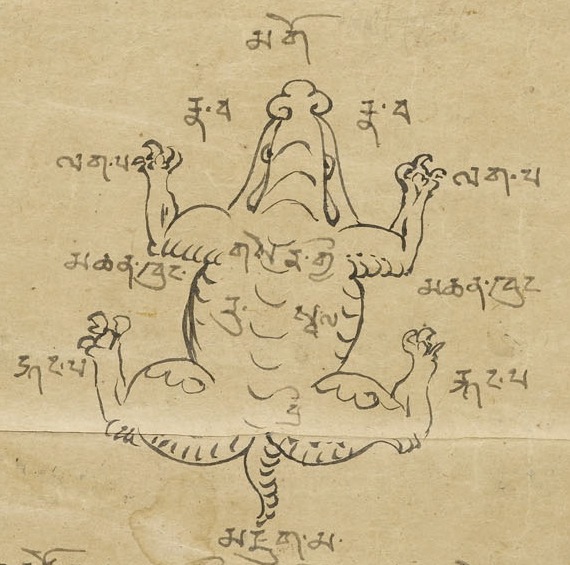 མགོ
རྣ་བ རྣ་བ
ལག་པ ལག་པ
གསེར་གྱི
མཆན་ཁུང་ མཆན་ཁུང
རུ་ སྦལ
རྐང་པ རྐང་པ
མཇུག་མ་